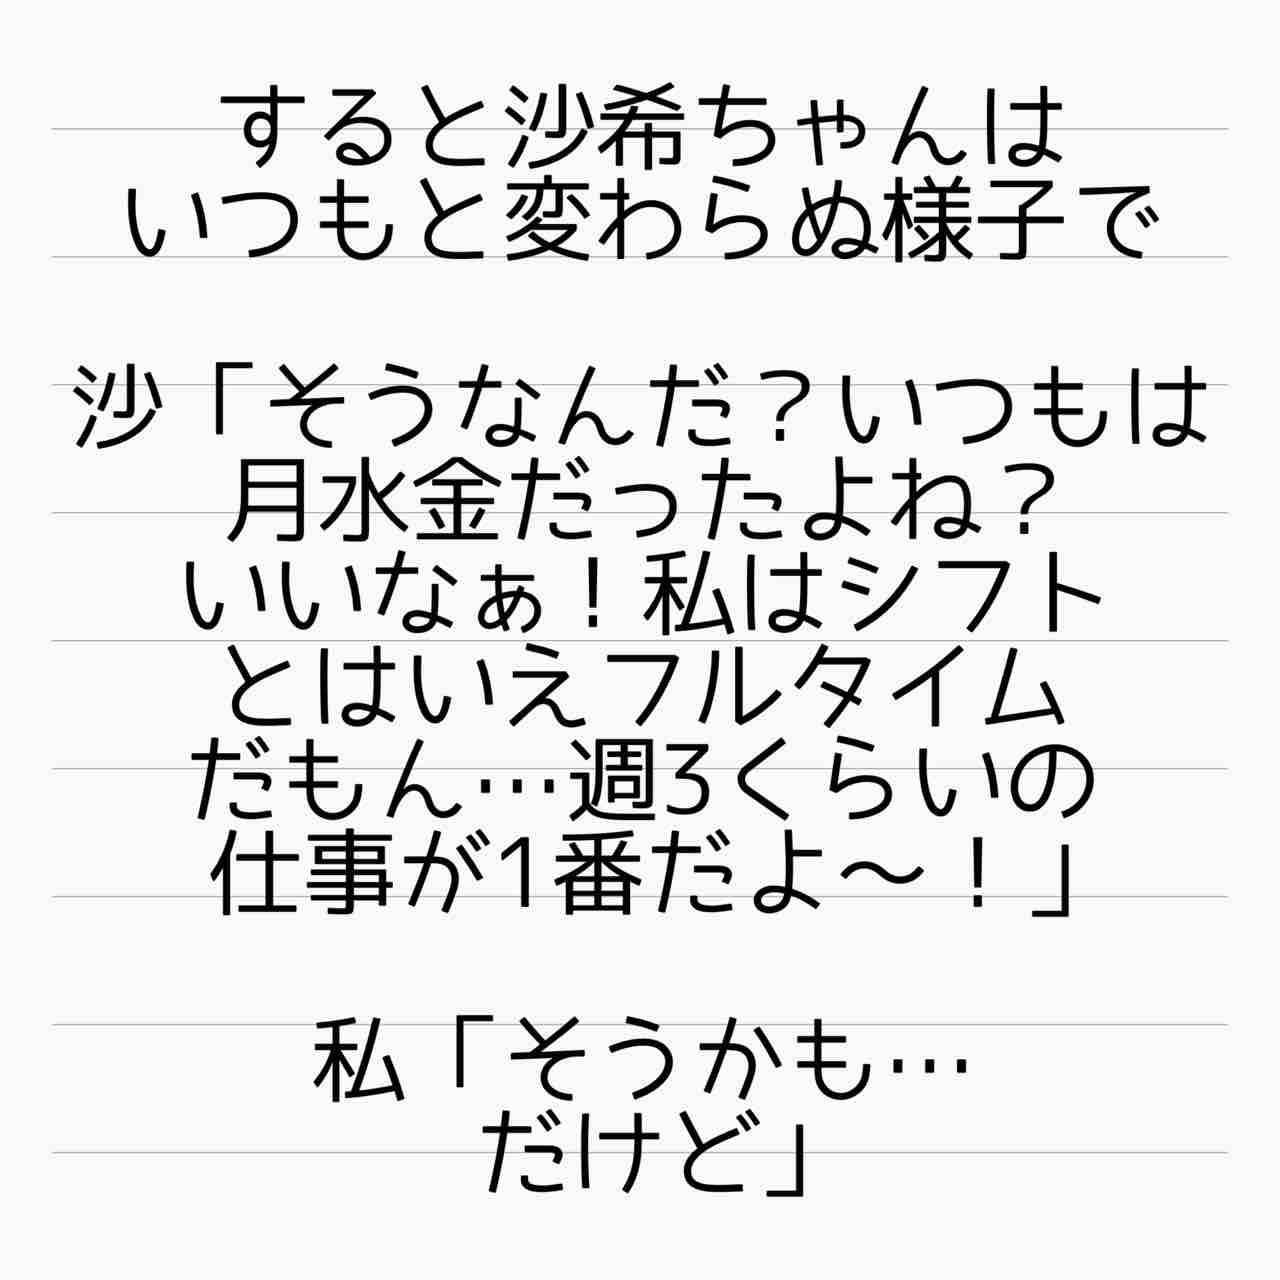 すると沙希ちゃんは
いつもと変わらぬ様子で
沙「そうなんだ？いつもは
月水金だったよね？
いいなぁ！私はシフト
とはいえフルタイム
だもん…週3くらいの
仕事が1番だよ〜！」
私「そうかも…
だけど」